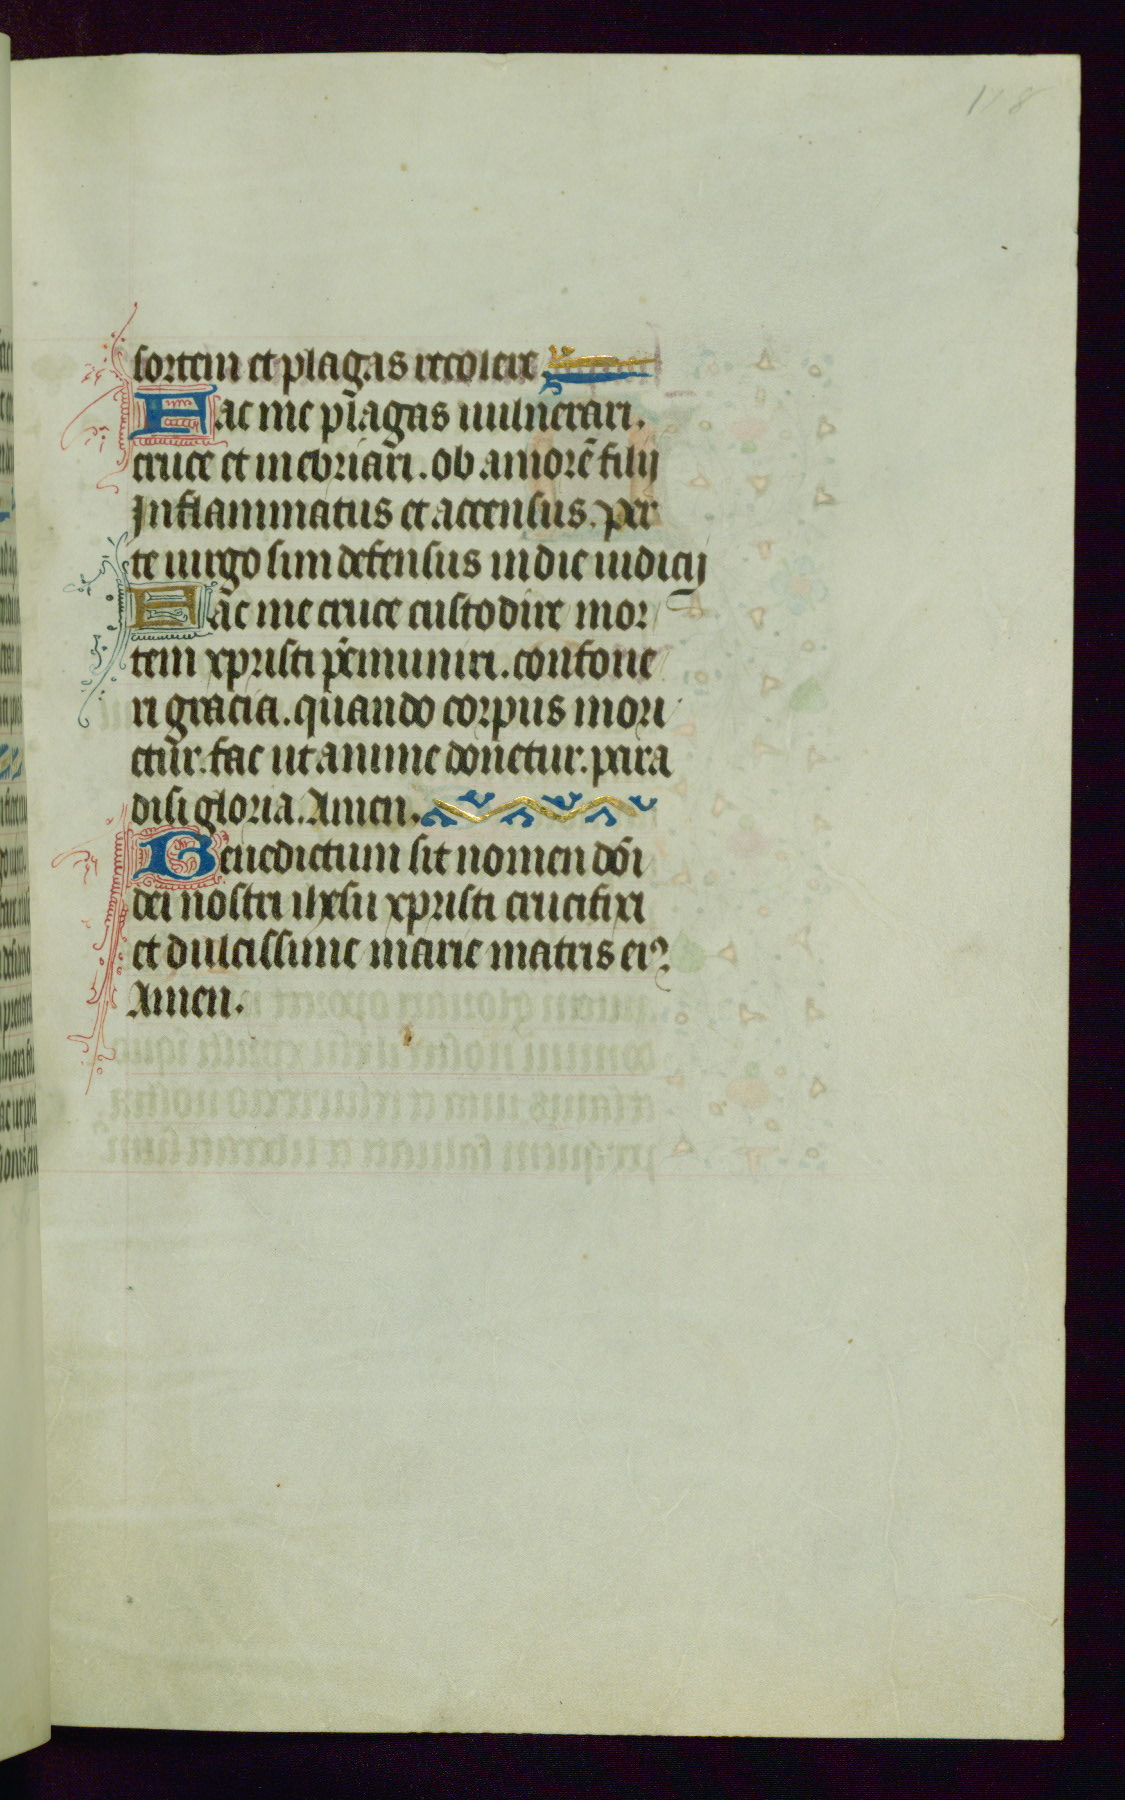 118
sortem et plagas recolere
Fac me plagas uulnerari.
cruce et inebriari. ob amorē filij
Inflammatus et accensus. per
te uirgo sim defensus in die iudicij
Fac me cruce custodire mor
tem xpristi p̄muniri. confoue
ri gracia. quando corpus mori
etur. fac ut anime donetur. para
disi gloria. Amen.
Benedictum sit nomen dōi
dei nostri ihesu xpristi crucifixi
et dulcissime marie matris eiꝰ
Amen.